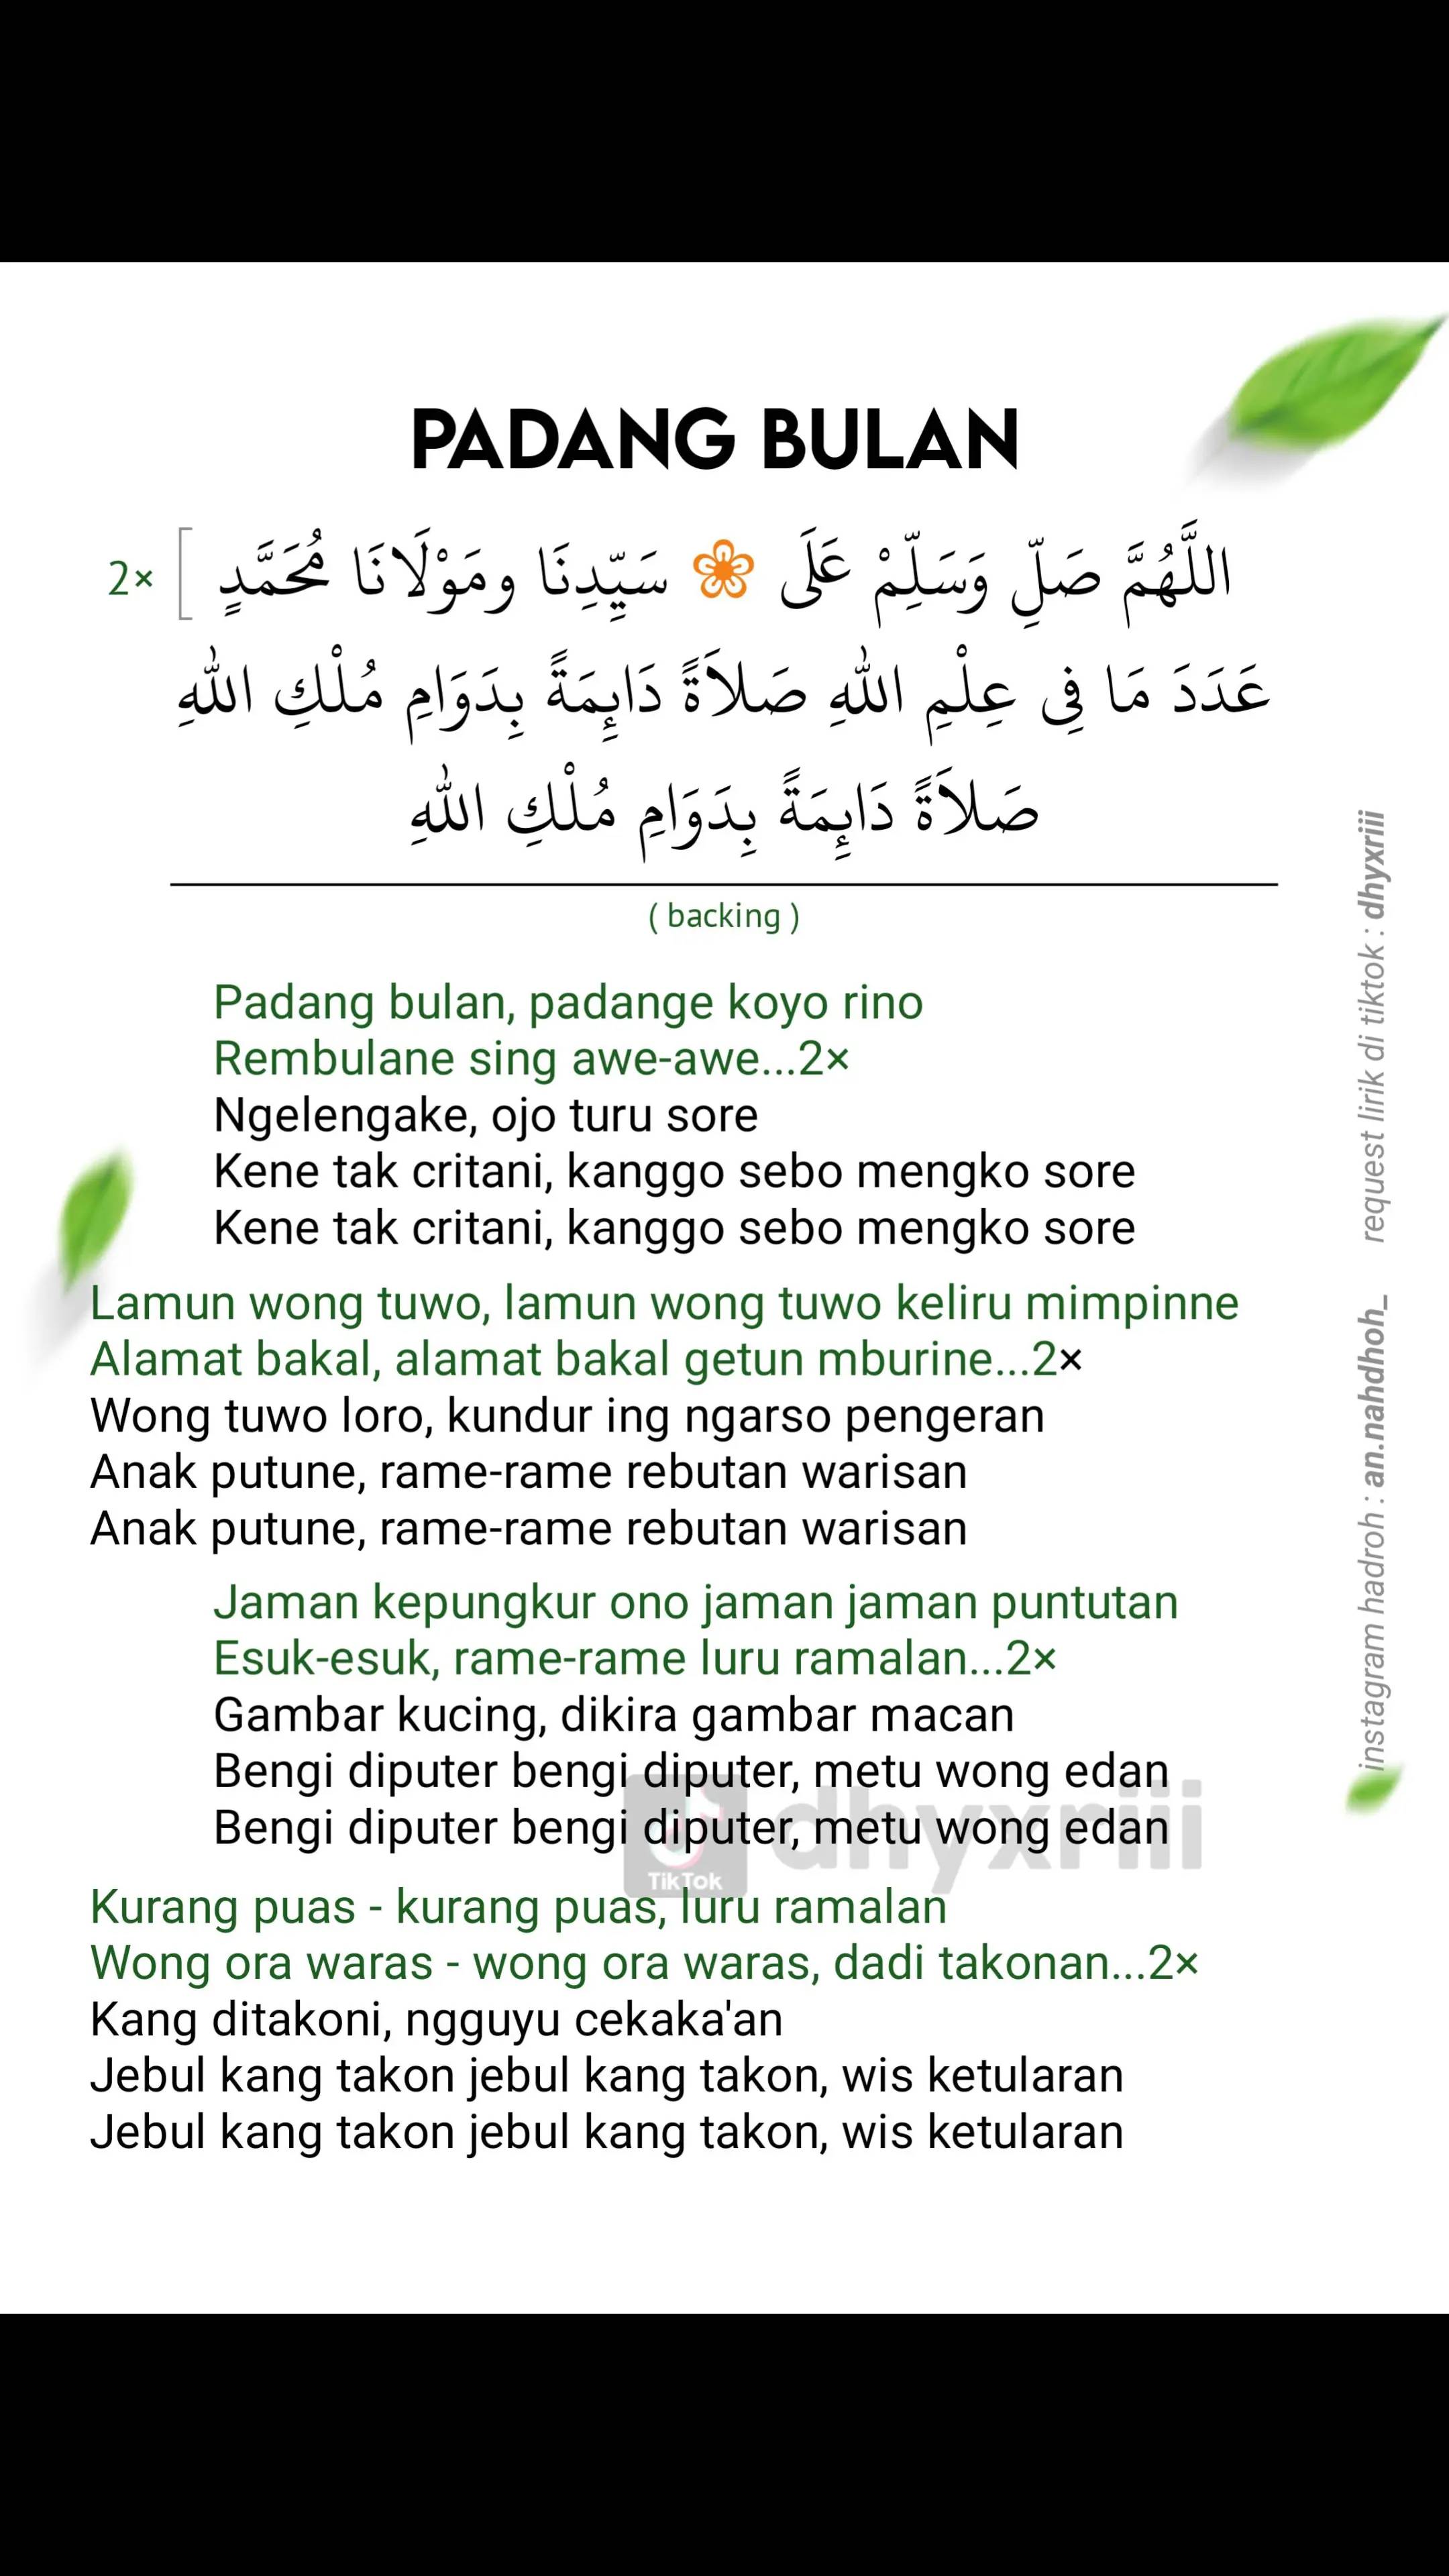 PADANG BULAN
اللَّهُمَّ صَلِّ وَسَلِّمْ عَلَى ❀ سَيِّدِنَا ومَوْلَانَا مُحَمَّدٍ [ 2×
عَدَدَ مَا فِى عِلْمِ اللهِ صَلاَةً دَائِمَةً بِدَوَامِ مُلْكِ اللهِ
صَلاَةً دَائِمَةً بِدَوَامِ مُلْكِ اللهِ
( backing )
Padang bulan, padange koyo rino
Rembulane sing awe-awe...2×
Ngelengake, ojo turu sore
Kene tak critani, kanggo sebo mengko sore
Kene tak critani, kanggo sebo mengko sore
Lamun wong tuwo, lamun wong tuwo keliru mimpinne
Alamat bakal, alamat bakal getun mburine...2×
Wong tuwo loro, kundur ing ngarso pengeran
Anak putune, rame-rame rebutan warisan
Anak putune, rame-rame rebutan warisan
Jaman kepungkur ono jaman jaman puntutan
Esuk-esuk, rame-rame luru ramalan...2×
Gambar kucing, dikira gambar macan
Bengi diputer bengi diputer, metu wong edan
Bengi diputer bengi diputer, metu wong edan
Kurang puas - kurang puas, luru ramalan
Wong ora waras - wong ora waras, dadi takonan...2×
Kang ditakoni, ngguyu cekaka'an
Jebul kang takon jebul kang takon, wis ketularan
Jebul kang takon jebul kang takon, wis ketularan
instagram hadroh : an.nahdhoh_ request lirik di tiktok : dhyxriii
TikTok dhyxriii